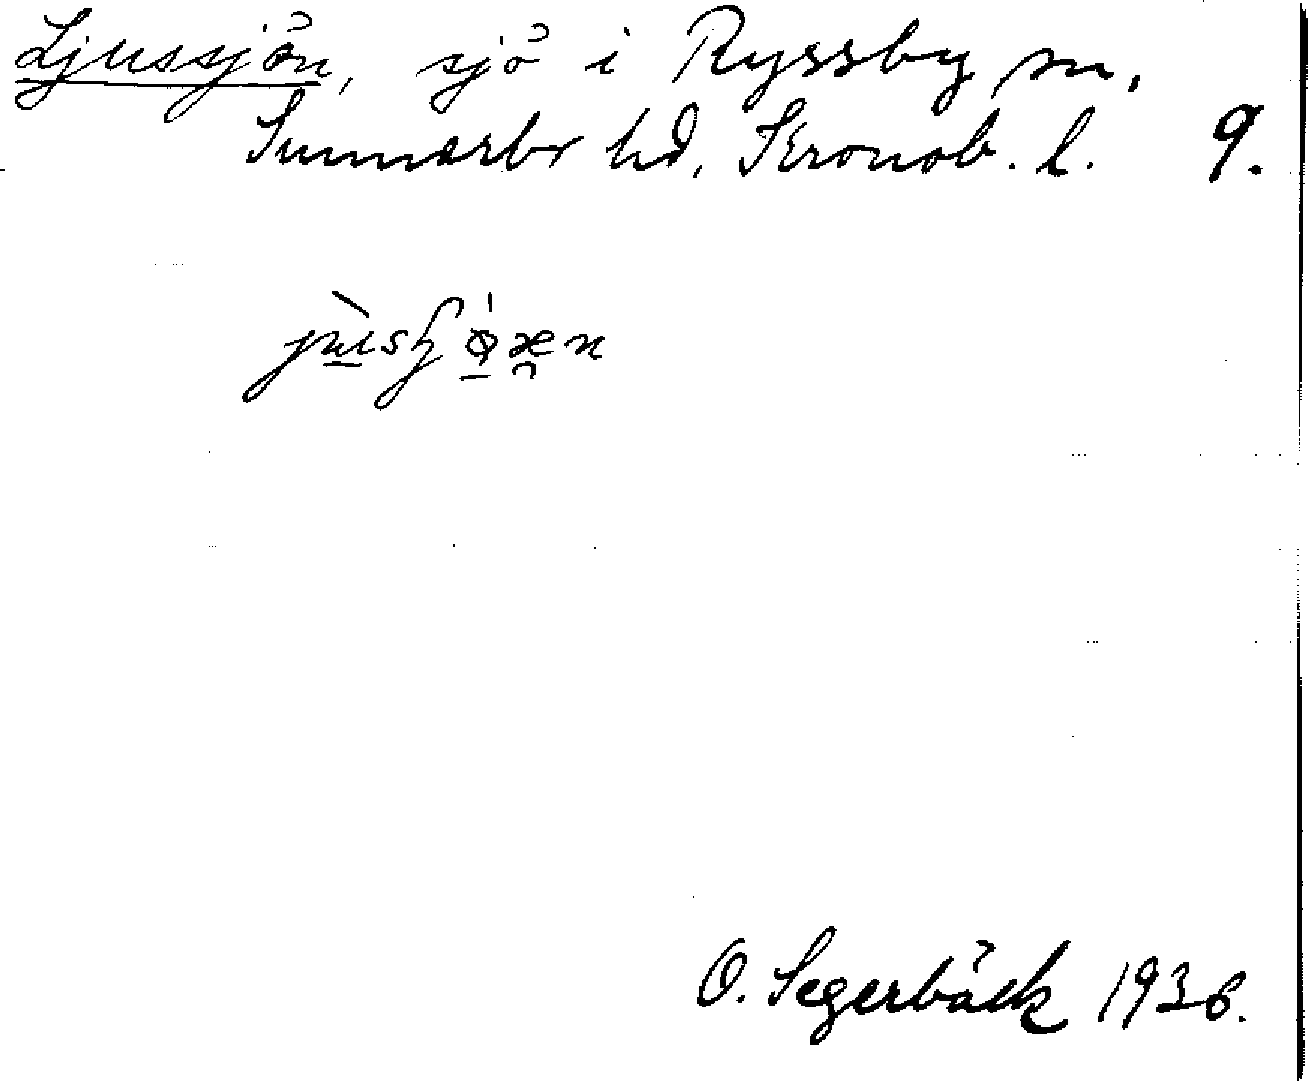 Ljussjön, sjö i Ryssby sn,
Sunnerbo hd, Kronob. l. 9.
O. Segerbäck 1936.